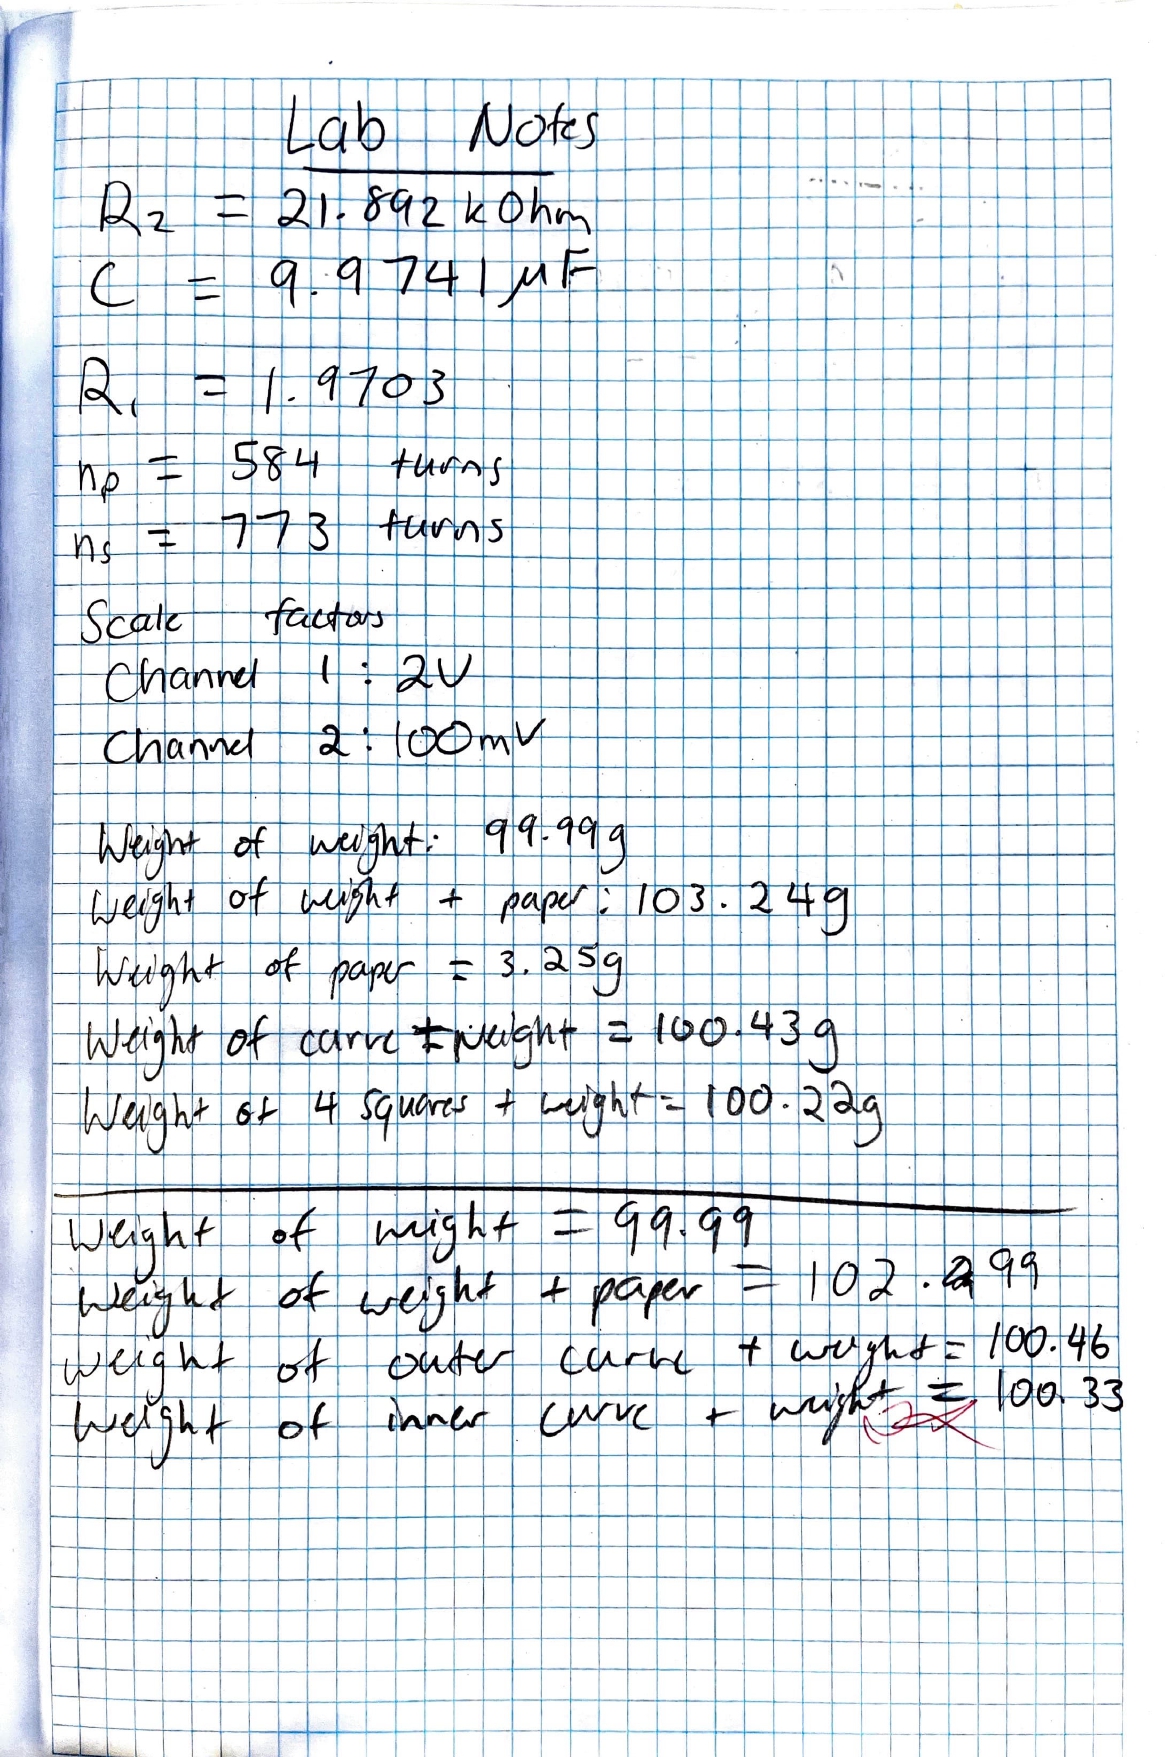 Lab Notes
R2 = 21.892 kOhm
C = 9.9741 μF
R1 = 1.9703
np = 584 turns
ns = 773 turns
Scale factors
Channel 1 : 2V
Channel 2 : 100mV
Weight of weight: 99.99g
Weight of weight + paper: 103.24g
Weight of paper = 3.25g
Weight of curve + weight = 100.43g
Weight of 4 squares + weight = 100.22g
Weight of weight = 99.99
Weight of weight + paper = 102.99
Weight of outer curve + weight = 100.46
Weight of inner curve + weight = 100.33